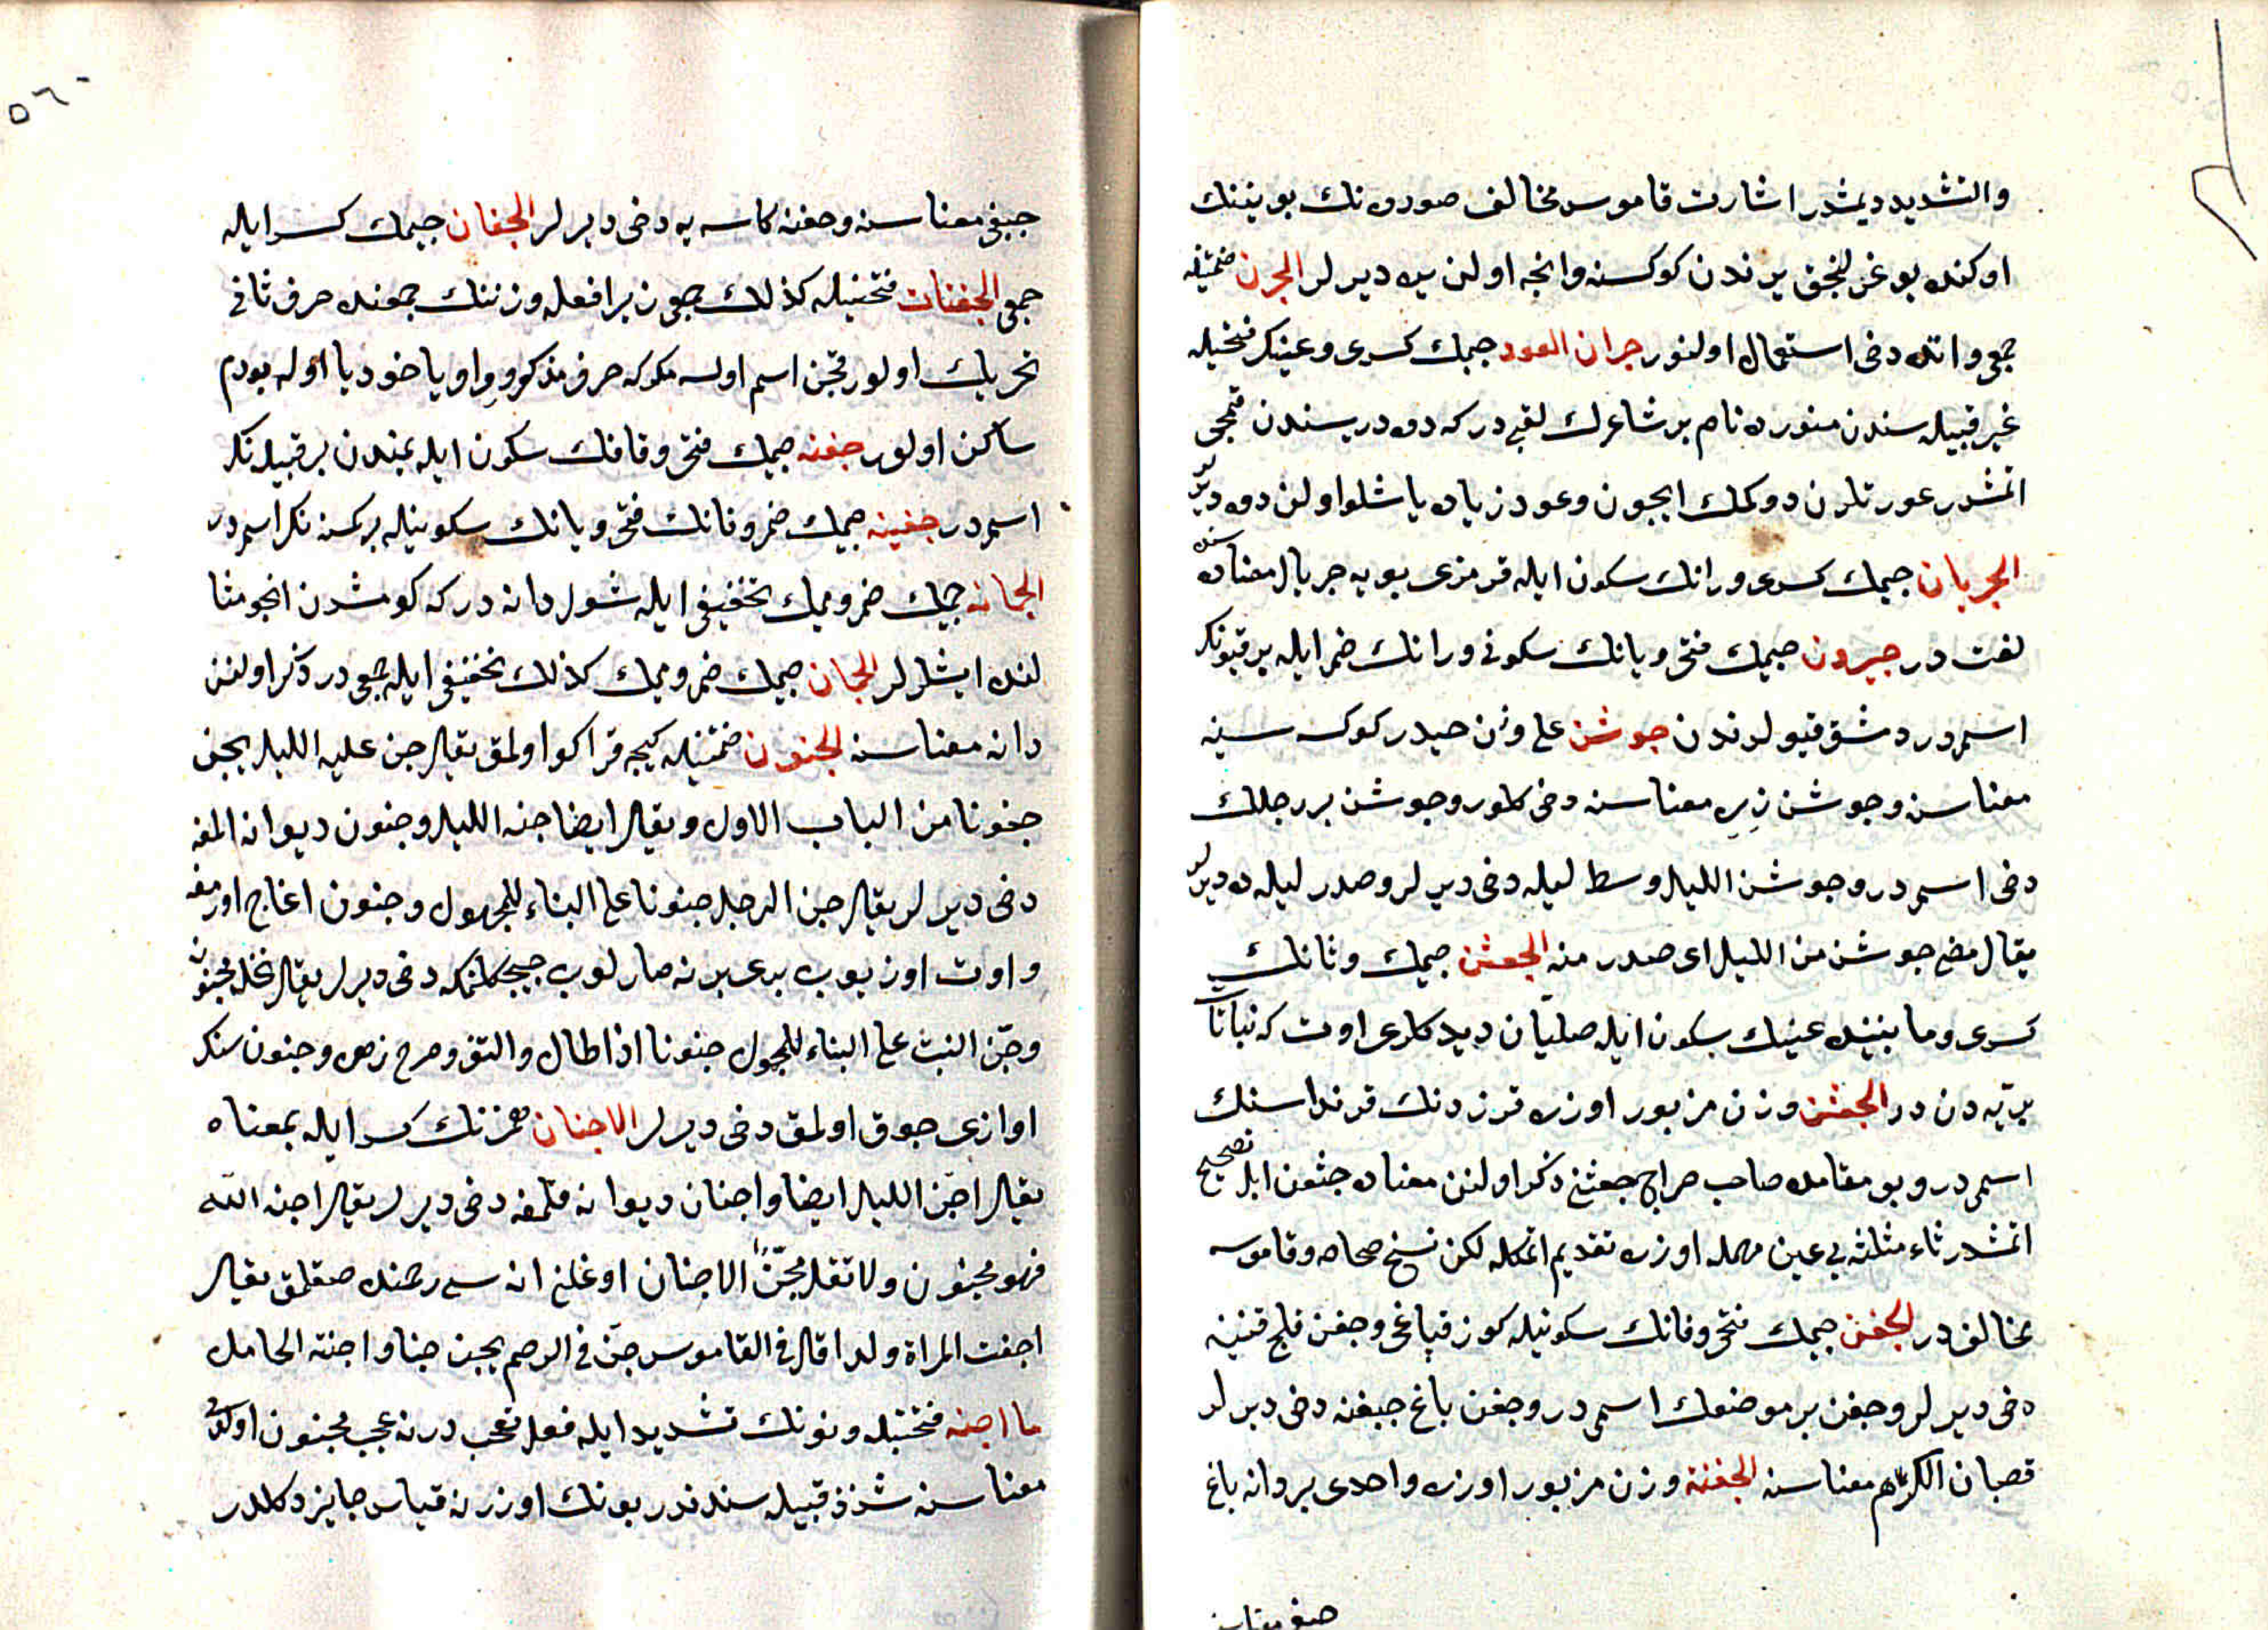 والتشديد ديمشدر اشارت قاموس مخالف صورون نك بوينينك
اوكنده بوغزلنجق يرندن كوكسنه وانجه اولن يره ديرلر الجرن ضمتيله
جمعى واتده دخى استعمال اولنور جران العود جيمك كسرى وعينك فتحيله
غير قبيله سندن منوره نام بر شاعرك لقبى در كه دوه دريسندن قمجى
اتمشدر عورتلرن دوكمك ايچون وعود زياده ياشلو اولن دوه ديرلر
الجريان جيمك كسرى ورانك سكون ايله قرمزى بويه جريال معناسنده
لغت در جيرون جيمك فتحى ويانك سكونى ورانك ضم ايله بر قپونك
اسمدر دمشق قپولرندن جوشن على وزن حيدر كوكس سينه
معناسنه وجوشن زره معناسنه دخى كلور وجوشن بر رجلك
دخى اسمدر وجوشن الليل وسط ليله دخى ديرلر وصدر ليله ده ديرلر
يقال مضى جوشن من الليل اى صدر منه الجعثن جيمك وثانك
كسرى وما بيننده عينك سكون ايله صليان ديدكلرى اوت كه نباتات
بريه دن در الجعثن وزن مزبور اوزره فرزدنك قرنداسنك
اسمى در وبو مقامده صاحب صراح جعثن ذكر اولنن معناده جثعن ايله تصحيح
اتمشدر ثاء مثلثه يى عين مهمله اوزره تقديم اتمكله لكن نسخ صحاح وقاموسه
مخالف در الجفن جيمك فتحى وفانك سكونيله كوز قپاغى وجفن قلج قنينه
دخى ديرلر وجفن بر موضعك اسمى در وجفن باغ چبغنه دخى ديرلر
قصبان الكرم معناسنه الجفنة وزن مزبور اوزره واحدى بر دانه باغ
جبغى معناسنه وجفنه كاسه يه دخى ديرلر الجفان جيمك كسر ايله
جمعى الجفنات فتحتيله كذلك جمعون برا فعله وزننك جمعنده حرف ثانى
تحريك اولور قچن اسم اولسه مكر كه حرف مذكور واو ياخود يا اوله بودم
ساكن اولور جفنه جيمك فتحى وفانك سكون ايله يمندن بر قبيله نك
اسمدر جفينه جيمك ضم وفانك فتحى ويانك سكونيله بر كمسنه نك اسمدر
الجمانه جيمك ضم وميمك تخفيفى ايله شول دانه در كه كومشدن انجو مثا
لنده ايشلرلر الجمان جيمك ضم وميمك كذلك تخفيفى ايله جمعى در ذكر اولنن
دانه معناسنه الجنون ضمتيله كيجه قراكو اولمق يقال جن عليه الليل يجن
جنونا من الباب الاول ويقال ايضا جنه الليل وجنون ديوانه المغه
دخى ديرلر يقال جن الرجل جنونا على البناء للمجهول وجنون اغاج اورمغه
واوت اوزيوب برى برنه صارلوب چيچكلنمكه دخى ديرلر يقال نخله مجنونه
وجن النبت على البناء للمجهول جنونا اذا طال والتف وخرج زهره وجنون سنك
اوازى چوق اولمق دخى ديرلر الاجنان همزنك كسر ايله بمعناه
يقال اجن الليل ايضا واجنان ديوانه قلمغه دخى ديرلر يقال اجنه الله
فهو مجنون ولا تقل مجن الاجنان اوغلن اناسى رحمنده صقلمق يقال
اجنت المراة ولدا قال فى القاموس جن فى الرحم يجن جنا واجنته الحامل
ما اجنه فتحتيله ونونك تشديد ايله فعل تعجب در نه عجب مجنون اولدى
معناسنه شذذ قبيله سندندر بونك اوزرنه قياس جايز دكلدر